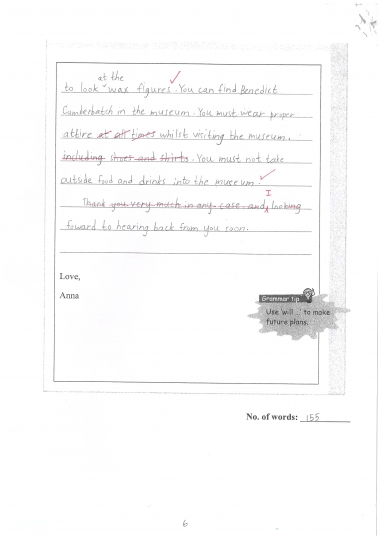 at the
to look wax figures. You can find Benedict
Cumberbatch in the museum. You must wear proper
attire at all times whilst visiting the museum.
including shoes and shirts. You must not take
outside food and drinks into the museum.
I
Thank you very much in any case and looking
foward to hearing back from you soon.
Love,
Anna
Grammar tip
Use 'will ...' to make
future plans.
No. of words: 155
6